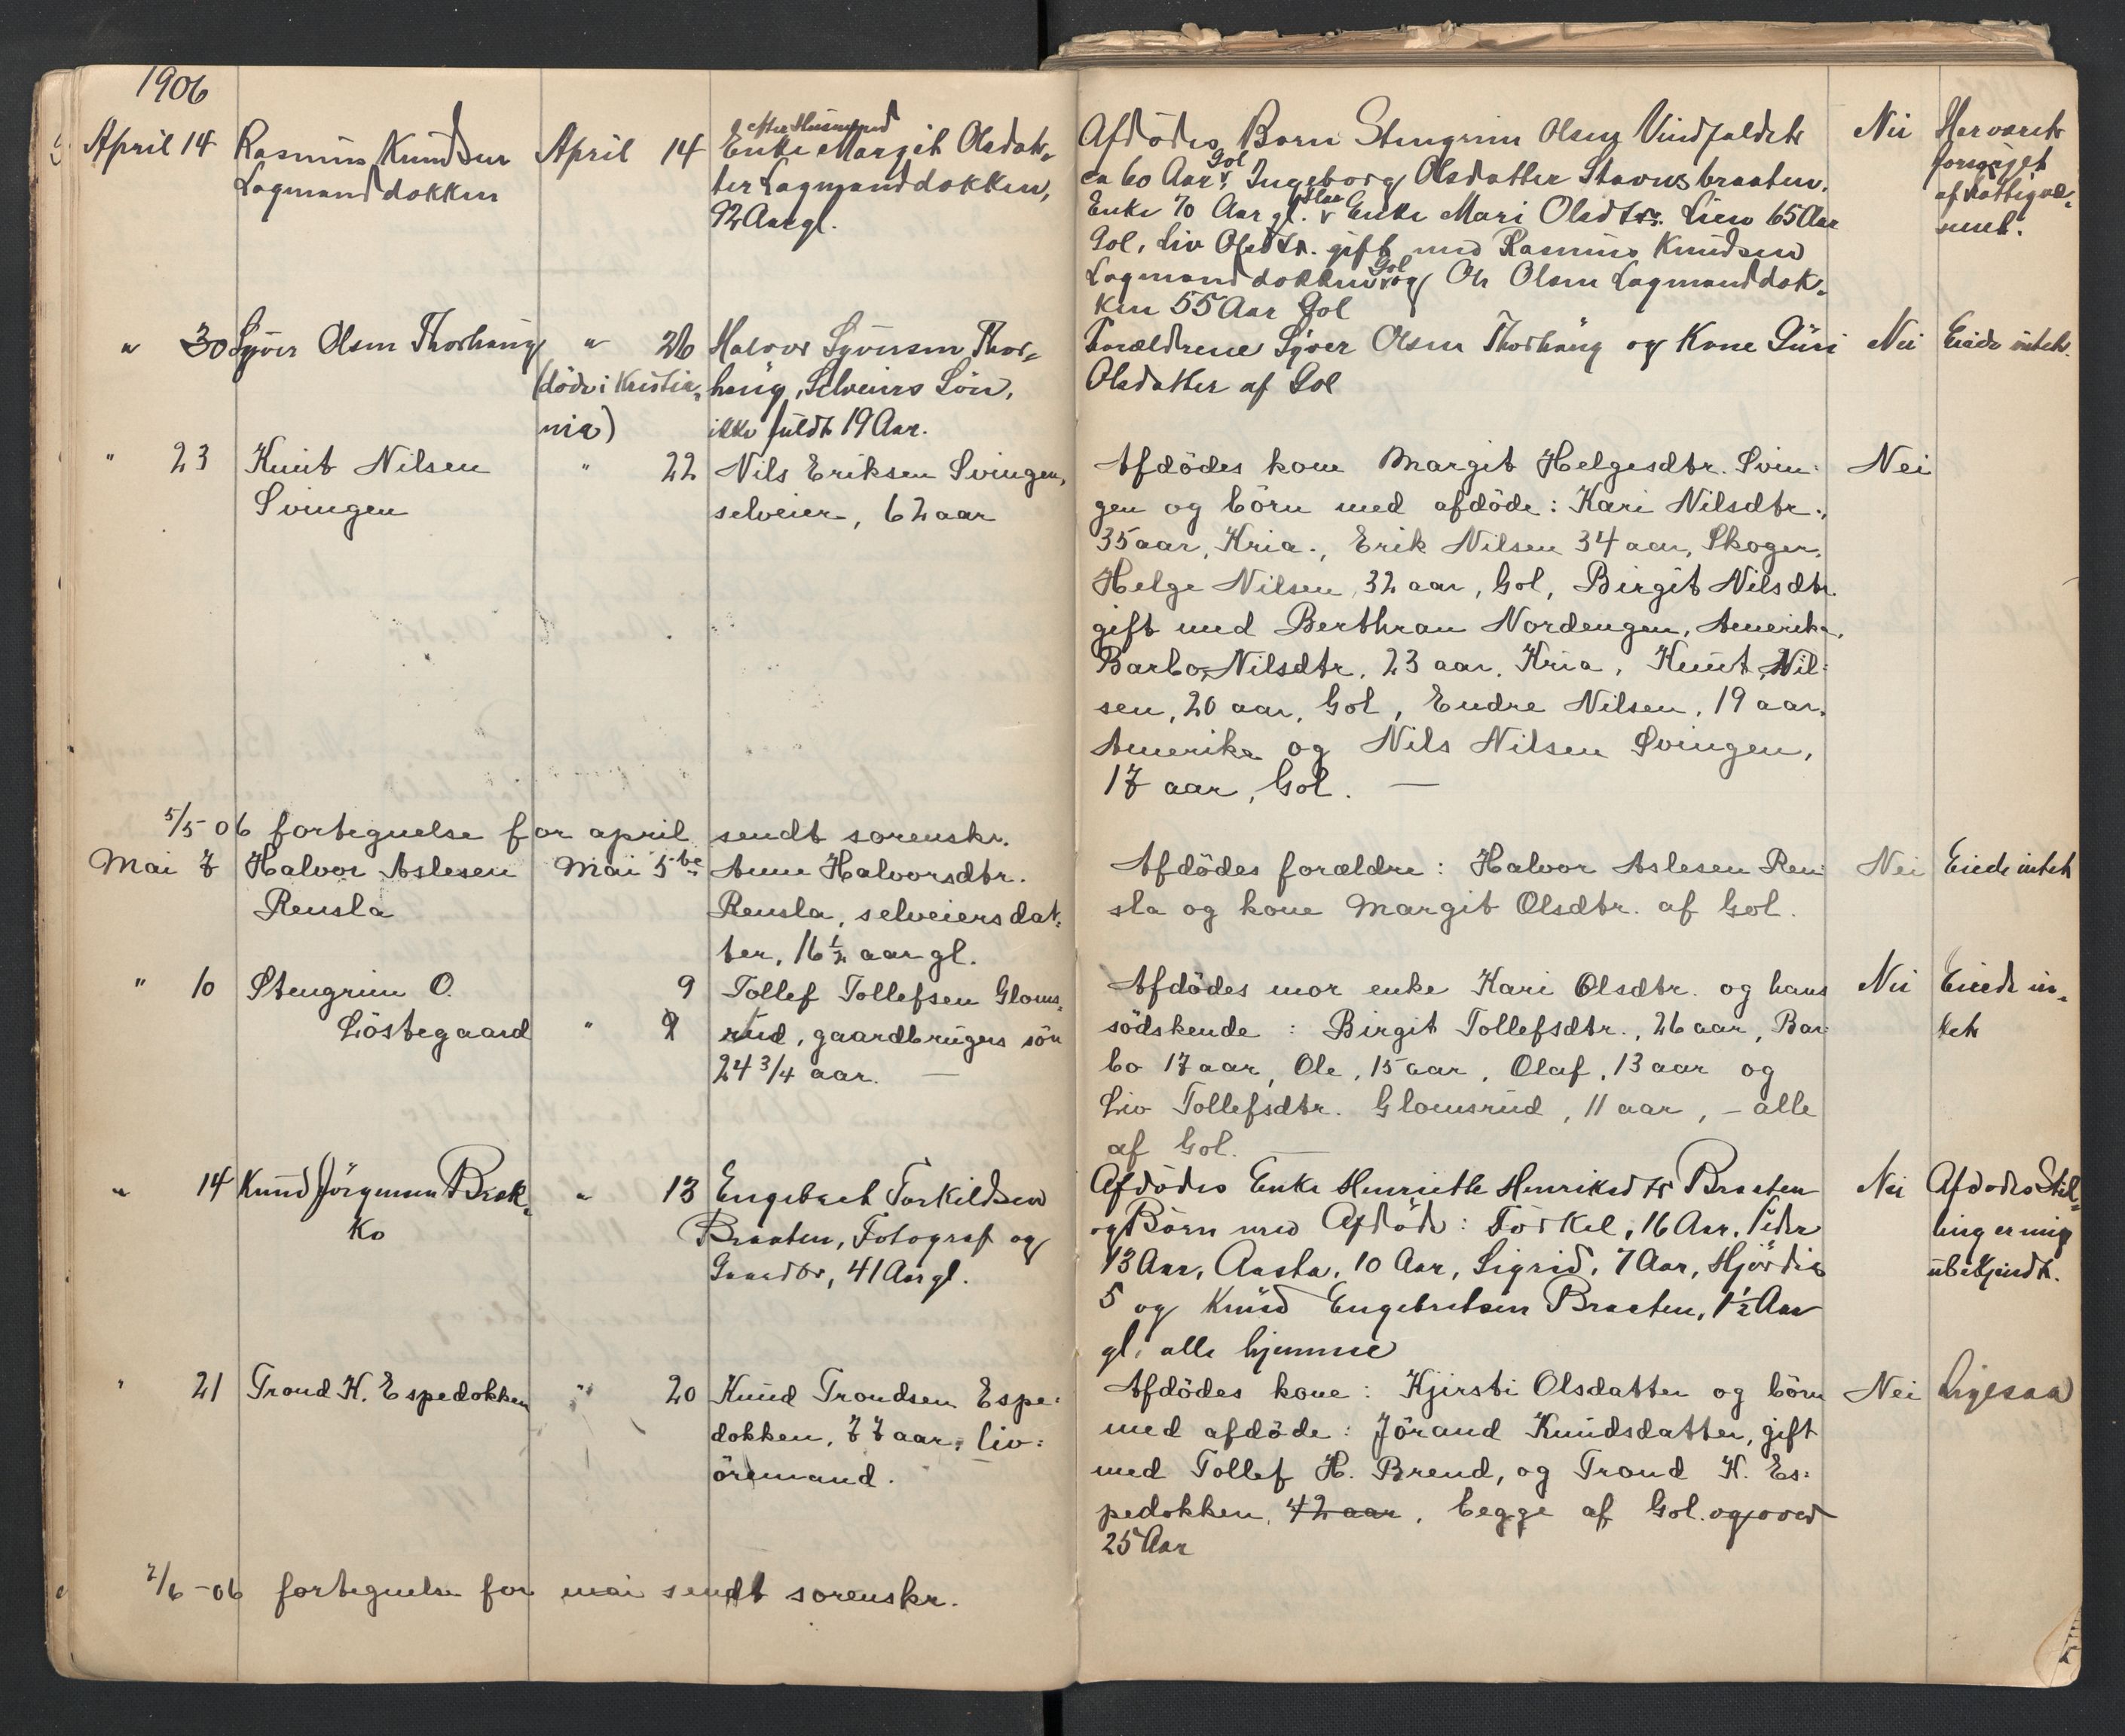 1906
April 14
Rasmus Knudsen
Lagmanddokken
April 14
efter Husmand
Enke Margit Olsdat-
ter Lagmanddokken,
92 Aar gl.
Afdødes Børn Stengrim Olsen Vindfaldet
ca 60 Aar, Gol, Ingeborg Olsdatter Stavnsbraaten,
Enke 70 Aar gl. Enke Mari Olsdtr. Lien 65 Aar
Gol, Liv Olsdtr. gift med Rasmus Knudsen
Lagmanddokken Gol og Ole Olsen Lagmanddok-
ken 55 Aar Gol
Nei
Har været
forsørget
af Fattigvæ-
senet.
" 30
Syver Olsen Thorhaug
" 26
(døde i Kristia-
nia)
Halvor Syversen Thor-
haug, Selveiers Søn,
ikke fuldt 19 Aar.
Forældrene Syver Olsen Thorhaug og Kone Guri
Olsdatter af Gol
Nei
Eiede intet.
" 23
Knut Nilsen
Svingen
" 22
Nils Eriksen Svingen,
selveier, 62 aar
Afdødes kone Margit Helgesdtr. Svin-
gen og børn med afdøde: Kari Nilsdtr.,
35 aar, Kria., Erik Nilsen 34 aar, Skoger,
Helge Nilsen, 32 aar, Gol, Birgit Nilsdtr.
gift med Berthran Nordengen, Amerika,
Barbo Nilsdtr. 23 aar, Kria, Knut Nil-
sen, 20 aar, Gol, Endre Nilsen, 19 aar,
Amerika og Nils Nilsen Svingen,
17 aar, Gol. —
Nei
5/5-06 fortegnelse for april sendt sorenskr.
Mai 7
Halvor Aslesen
Rensla
Mai 5te
Anne Halvorsdtr.
Rensla, selveiers dat-
ter, 16 ½ aar gl.
Afdødes forældre: Halvor Aslesen Ren-
sla og kone Margit Olsdtr. af Gol.
Nei
Eiede intet
" 10
Stengrim O.
Løstegaard
9
" 9
Tollef Tollefsen Gloms-
rud, gaardbrugers søn
24 3/4 aar. —
Afdødes mor enke Kari Olsdtr. og hans
södskende: Birgit Tollefsdtr., 26 aar, Bar-
bo 17 aar, Ole, 15 aar, Olaf, 13 aar og
Liv Tollefsdtr. Glomsrud, 11 aar, – alle
af Gol. —
Nei
Eiede in-
tet
" 14
Knud Jörgensen Brek-
ko
" 13
Engebret Torkildsen
Braaten, Fotograf og
Gaardbr, 41 Aar gl.
Afdødes Enke Henriette Henriksdtr Braaten
og Børn med Afdøde: Torkel, 16 Aar, Peder
13 Aar, Aasta, 10 Aar, Sigrid, 7 Aar, Hjørdis
5 og Knud Engebretsen Braaten, 1½ Aar
gl, alle hjemme
Nei
Afdødes Stil-
ling er mig
ubekjendt.
" 21
Trond K. Espedokken
" 20
Knud Trondsen Espe-
dokken, 77 aar, liv-
öremand.
Afdødes kone: Kjirsti Olsdatter og børn
med afdøde: Jörand Knudsdatter, gift
med Tollef H. Brend, og Trond K. Es-
pedokken, 42 aar, begge af Gol. og over
25 Aar
Nei
Ligesaa
2/6-06 fortegnelse for mai sendt sorenskr.